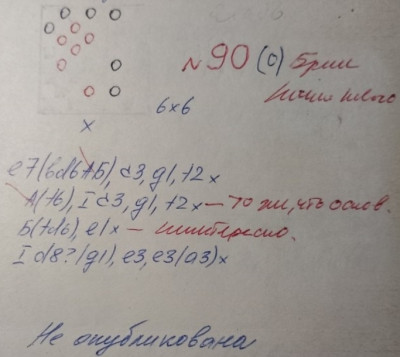 №90 (0) Бриш
6x6
x
e7(bd6+Б), c3, g1, +2x
A(f6), I c3, g1, +2x — то же, что основ.
Б(+d6), e1x — неинтересно.
I d8?(g1), e3, e3(a3)x
Не опубликована